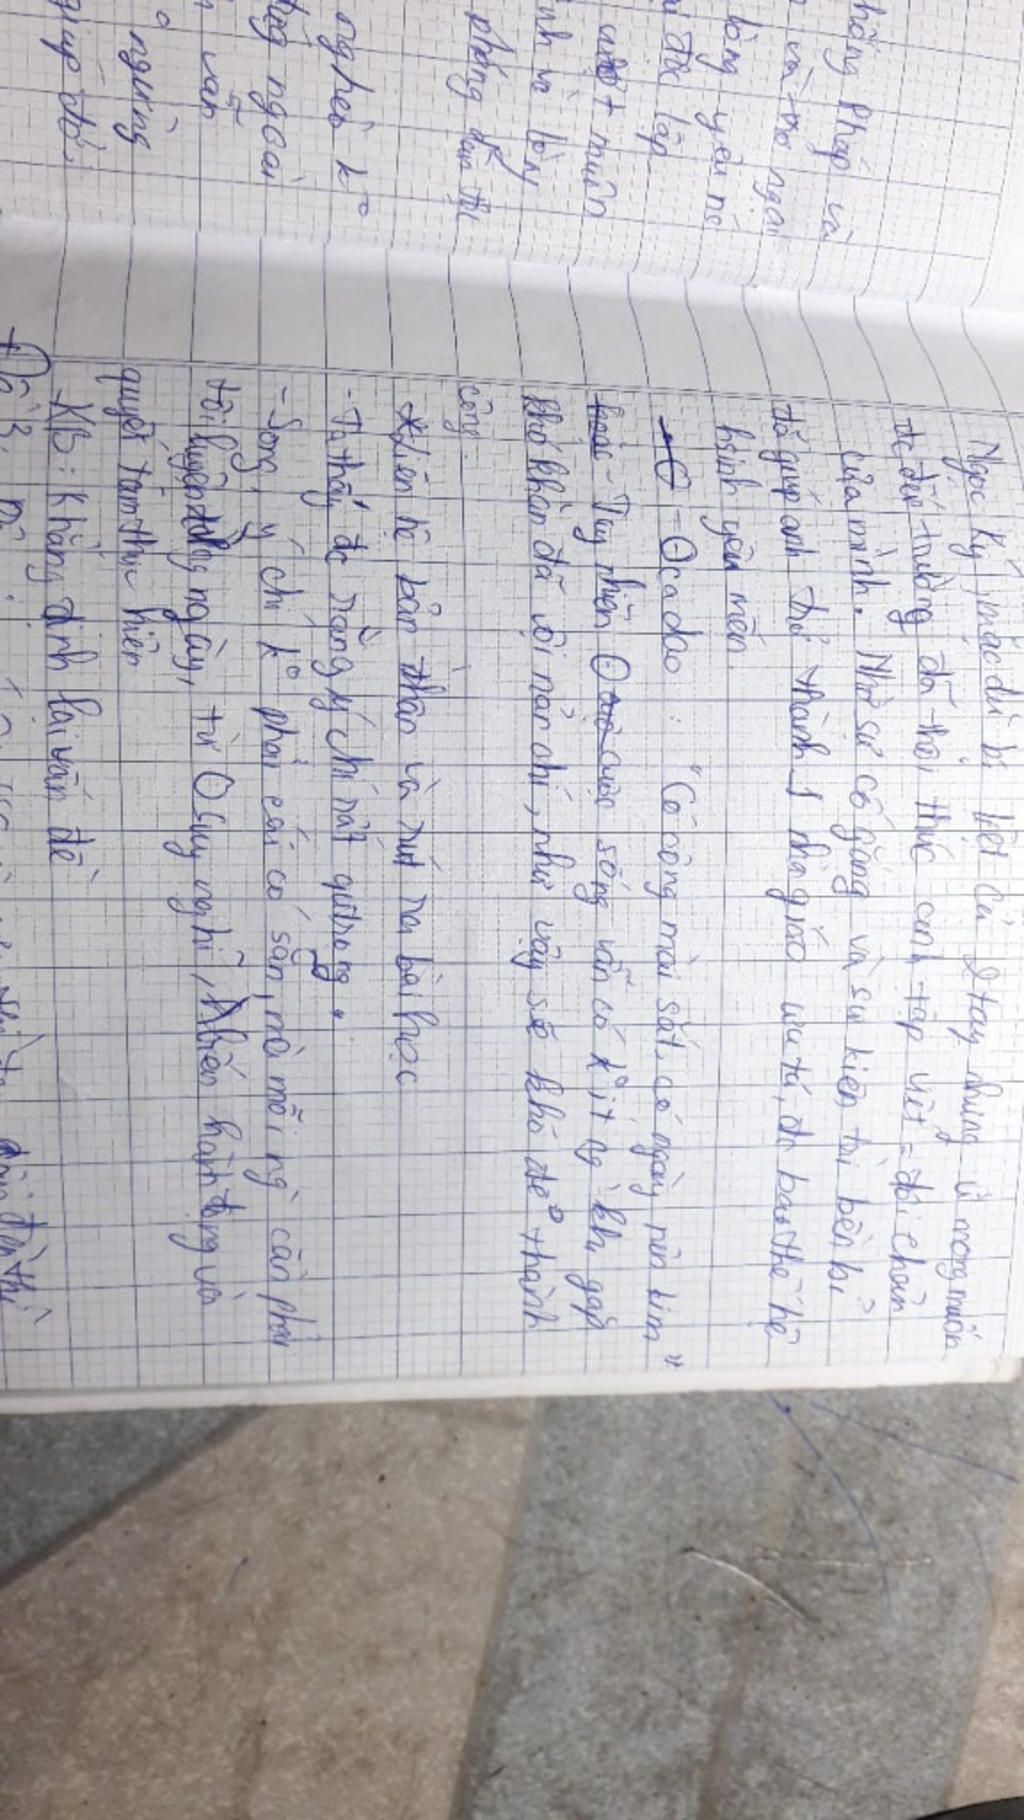 hống Pháp và
và
lòng yêu nc
độc lập
muôn
nh và lòng
phóng dân tộc
nghèo k°
ngoài
vẫn
ngừng
giúp đỡ.
Ngọc Ký, mặc dù bị liệt cả 2 tay nhưng vì mong muốn
đc đến trường đã thôi thúc anh tập viết = đôi chân
của mình. Nhờ sự cố gắng và sự kiên trì bền bỉ
đã giúp anh trở thành 1 nhà giáo ưu tú, đc bao thế hệ
hsinh yêu mến.
- O ca dao: "Có công mài sắt, có ngày nên kim"
- Tuy nhiên O cuộc sống vẫn có k° ít ng` khi gặp
khó khăn đã vội nản chí, như vậy sẽ khó để thành
công.
* Liên hệ bản thân và rút ra bài học
- Ta thấy đc rằng ý chí rất qtrọng.
- Song, ý chí k° phải cái có sẵn, mà mỗi ng` cần phải
tôi luyện hằng ngày, từ O suy nghĩ, đến hành động và
quyết tâm thực hiện
KB: Khẳng định lại vấn đề